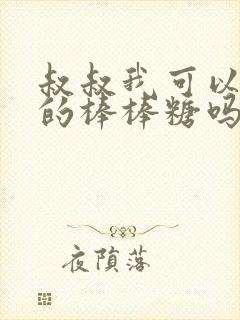 叔叔我可以
的棒棒糖吗
夜陨落